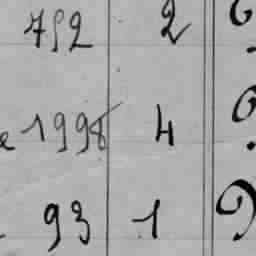 792 2
1998 4
93 1